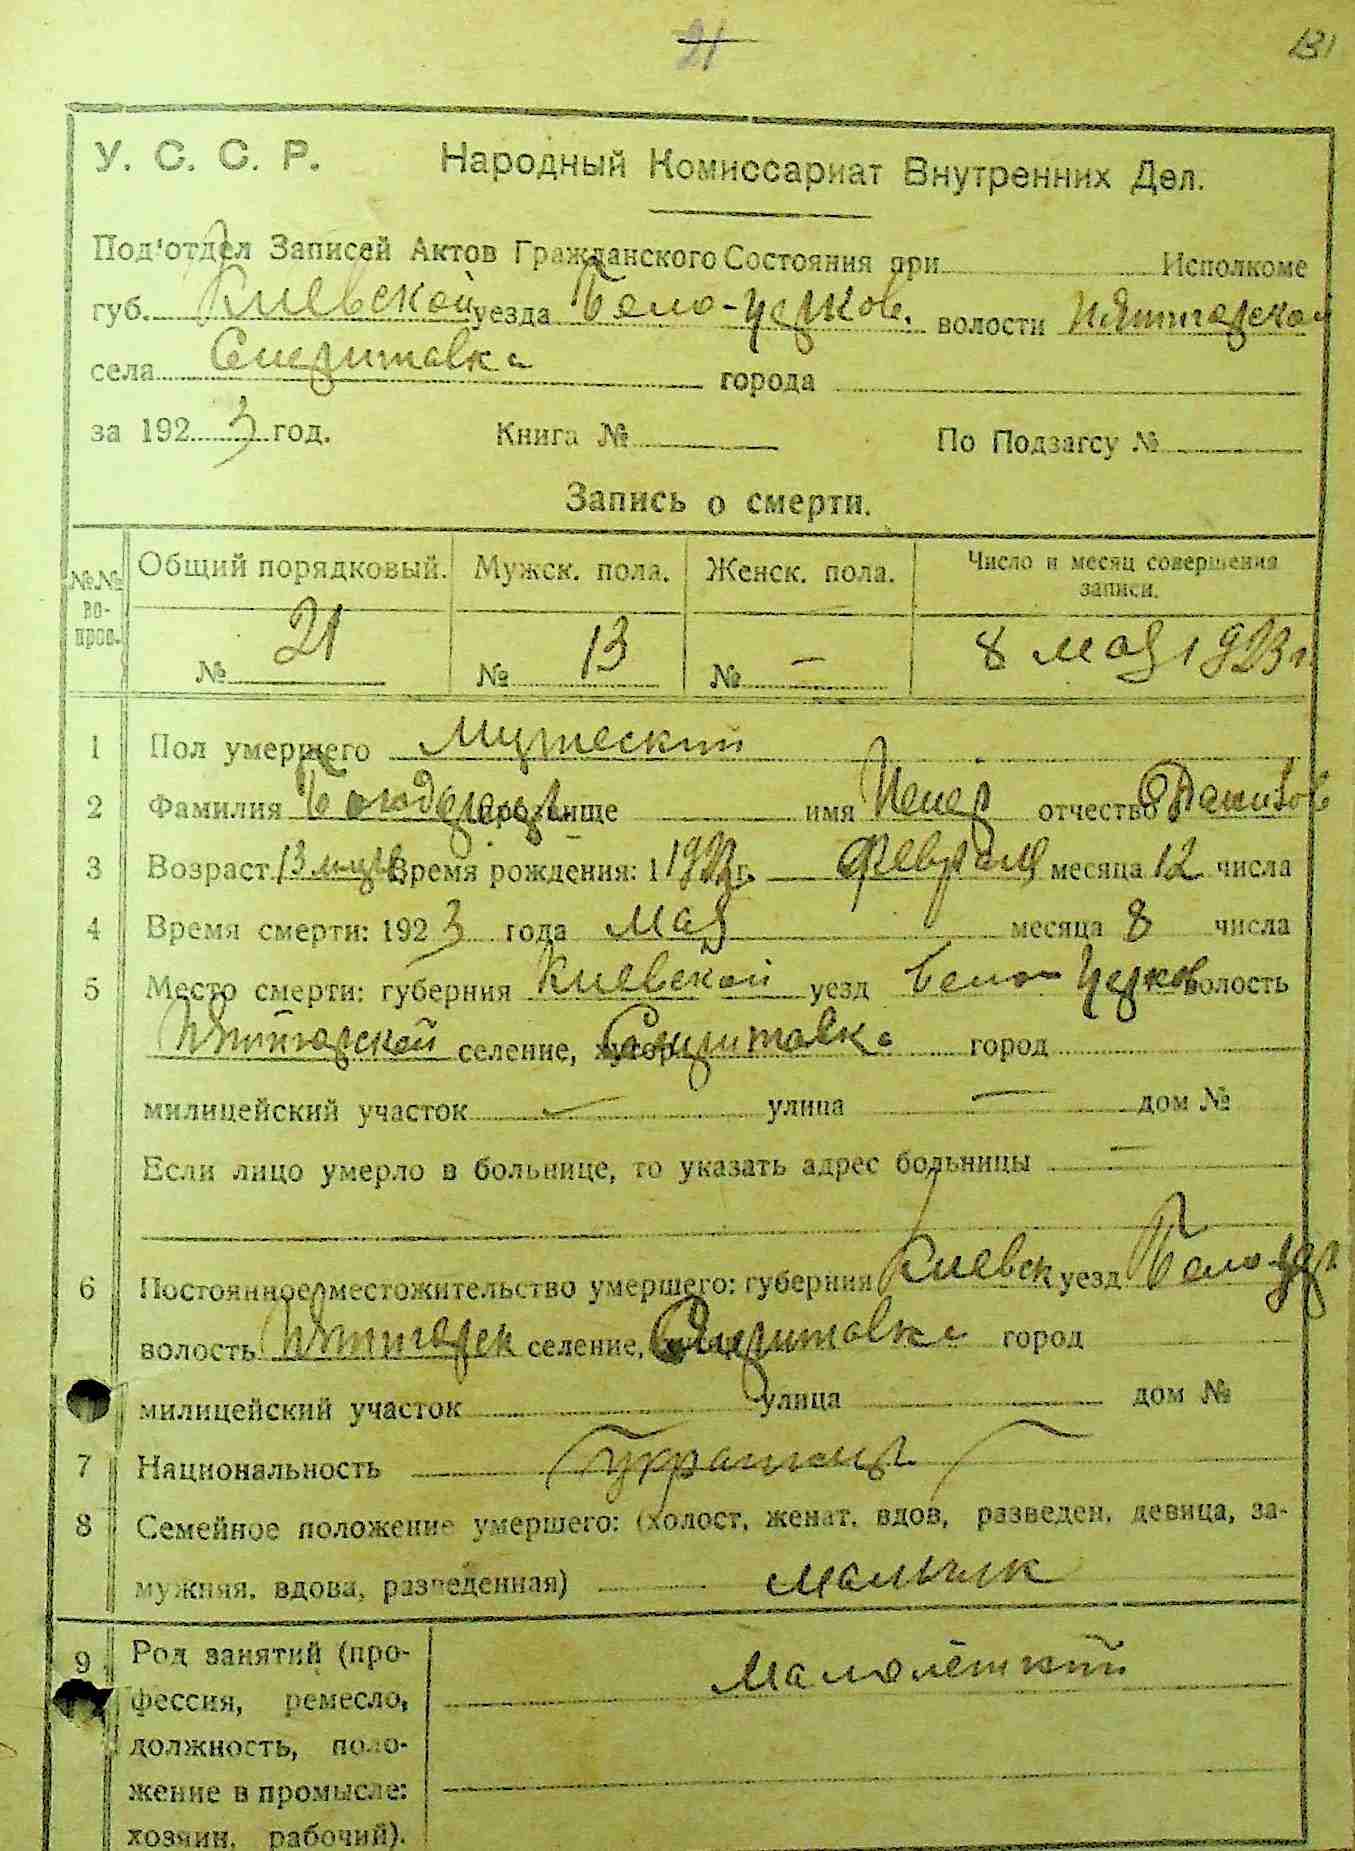 21
131
У. С. С. Р. Народный Комиссариат Внутренних Дел.
Под'отдел Записей Актов Гражданского Состояния при Исполкоме
губ. Киевской уезда Бело-Церков. волости Пятигорской
села
города
за 1923 год. Книга № По Подзагсу №
Запись о смерти.
№№ вопров. Общий порядковый. Мужск. пола. Женск. пола. Число и месяц совершения записи.
№ 21 № 13 № — 8 мая 1923 г.
1 Пол умершего Мужеский
2 Фамилия прозвище имя отчество
3 Возраст 13 Время рождения: 1 г. Февраля месяца 12 числа
4 Время смерти: 1923 года Мая месяца 8 числа
5 Место смерти: губерния Киевской уезд Бело Церков волость
Пятигорской селение, хутор город
милицейский участок — улица — дом №
Если лицо умерло в больнице, то указать адрес больницы —
6 Постоянное местожительство умершего: губерния Киевск уезд Бело-Цер
волость Пятигорск селение, город
милицейский участок улица дом №
7 Национальность украинец
8 Семейное положение умершего: (холост, женат, вдов, разведен, девица, за-
мужняя, вдова, разведенная) мальчик
9 Род занятий (про- Малолетний
фессия, ремесло,
должность, поло-
жение в промысле:
хозяин, рабочий).